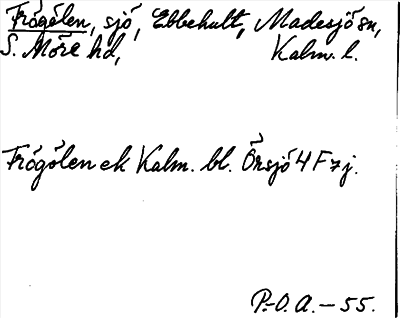 Frögölen, sjö, Ebbehult, Madesjö sn,
S. Möre hd, Kalm. l.
Frögölen ek Kalm. bl. Örsjö 4 F 7 j.
P.-O. A. - 55.